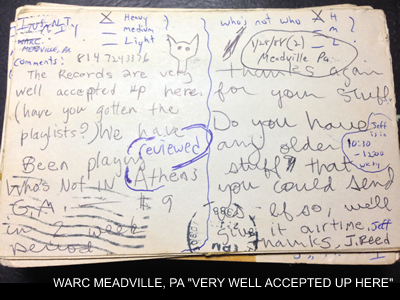 X Heavy
= medium
= Light
WARC
MEADVILLE, PA.
Comments: 814 7243376
The Records are very
well accepted up here.
(have you gotten the
playlists?) We have
reviewed
Been playing
Athens
Who's Not IN
GA. $9
in 2 week
period
who's not who X H
= m
= L
1/28/88 (2)
Meadville Pa.
Thanks again
for your stuff.
Do you have
any older
stuff that
you could send
us If so, we'll
give it airtime.
thanks, J. Reed
Jeff
is in
10:30
-12:00
Jeff
1988
WARC MEADVILLE, PA "VERY WELL ACCEPTED UP HERE"